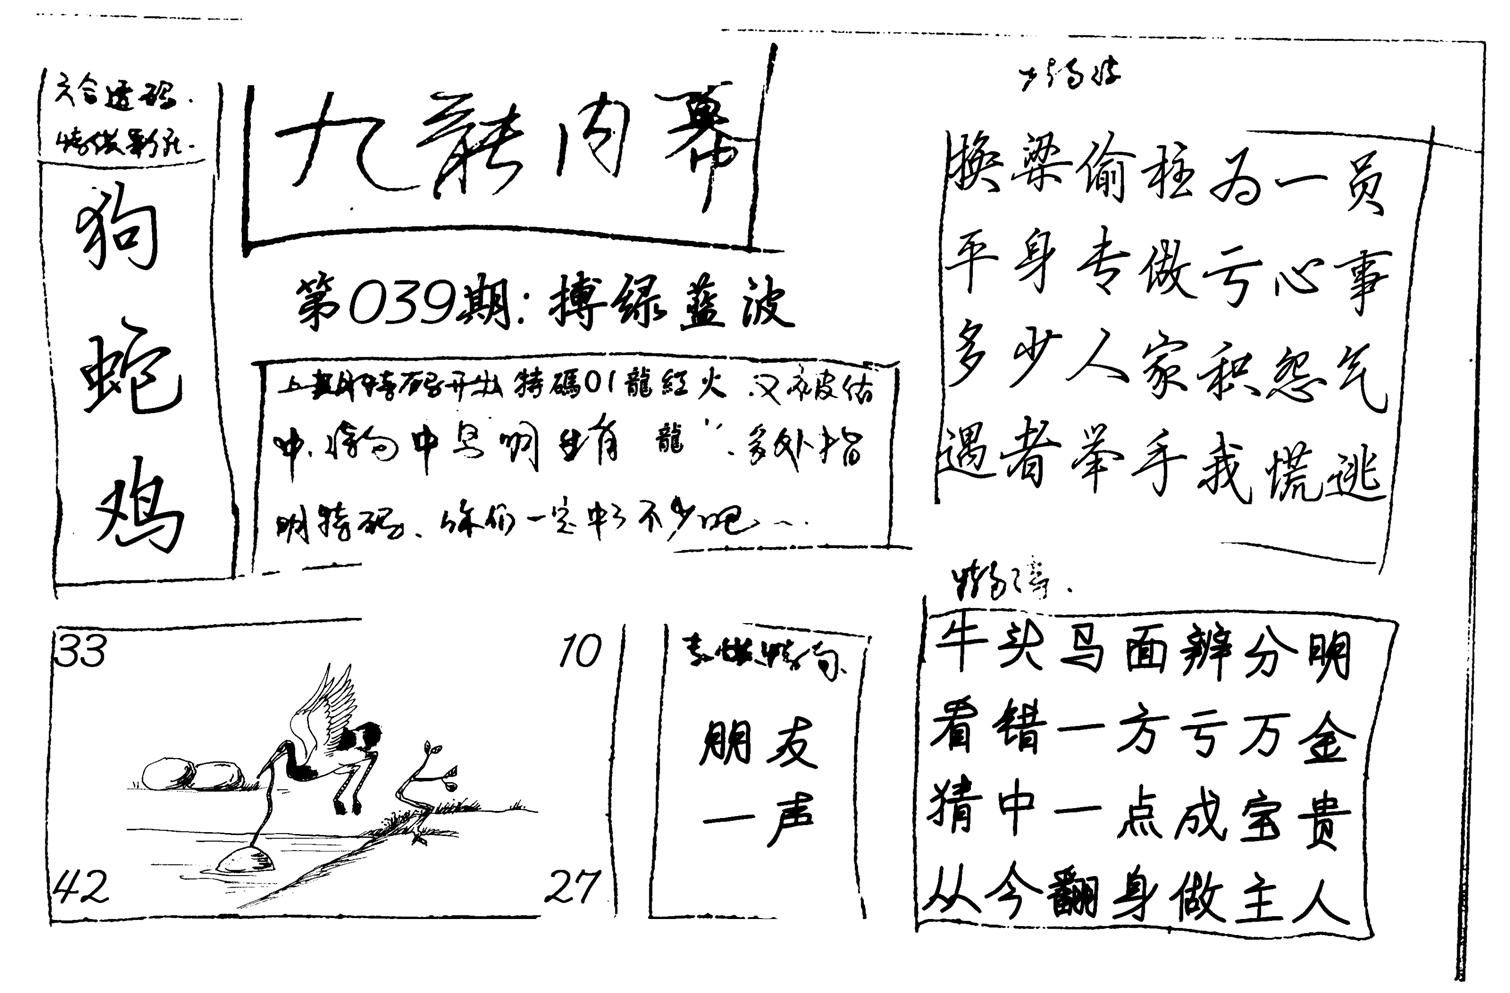 六合透码.
狗
蛇
鸡
九龍内幕
第039期:搏绿蓝波
上期特码开出特碼01龍红火.又被估
中.特句中是明生肖龍".多处指
明特码.你们一定中了不少吧...
换梁偷柱为一员
平身专做亏心事
多少人家积怨气
遇者举手我慌逃
33
10
42
27
朋友
一声
牛头马面辨分明
看错一方亏万金
猜中一点成宝贵
从今翻身做主人